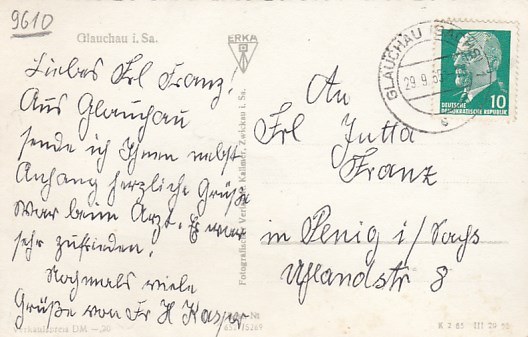 9610
Glauchau i. Sa.
ERKA
Liebes Frl Franz!
Aus Glauchau
sende ich Ihnen nebst
Anhang herzliche Grüße
War beim Arzt. Er war
sehr zufrieden.
Nochmals viele
Grüße von Fr H Kasper
Fotografischer Verlag R. Kallmer, Zwickau i. Sa.
GLAUCHAU (SACHS
29.9.65
c
10
DEUTSCHE
DEMOKRATISCHE REPUBLIK
An
Frl Jutta
Franz
in Penig i/Sachs
Uhlandstr 8
Verkaufspreis DM –,20
K 2 65 III 29 50